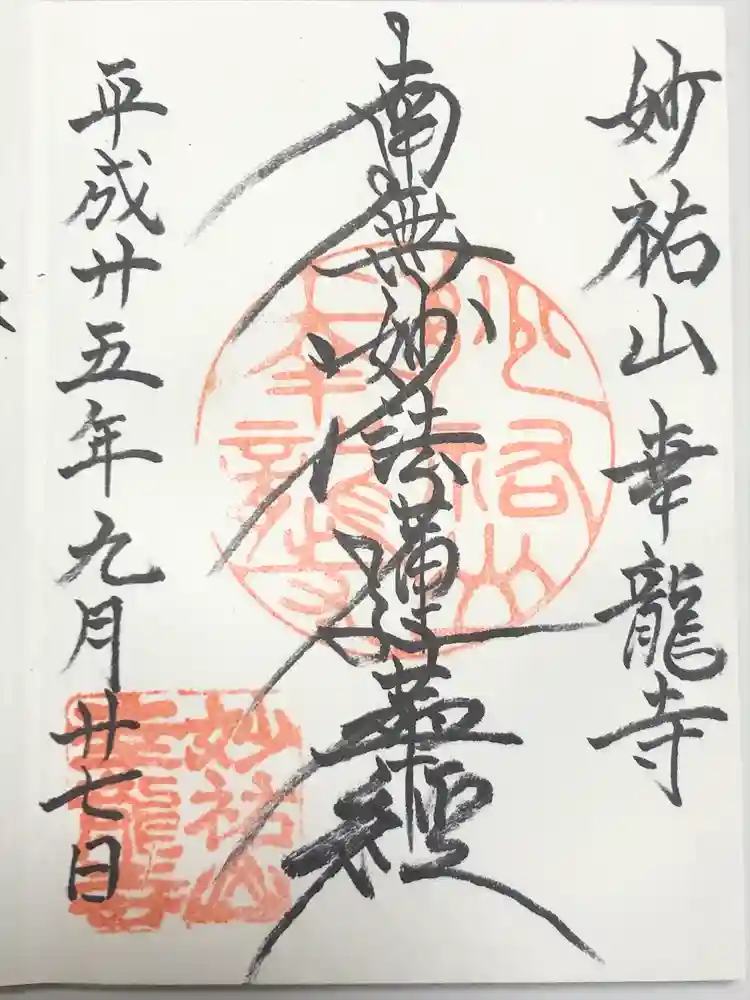 妙祐山幸龍寺
南無妙法蓮華經
平成廿五年九月廿七日
妙祐山
幸龍寺
妙祐山
幸龍寺